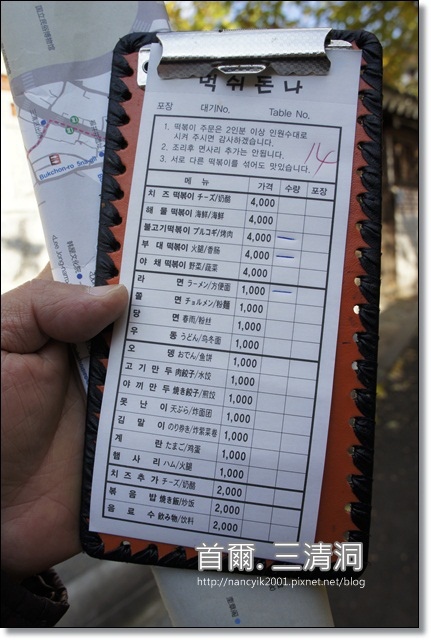 먹쉬돈나
포장 대기No. Table No.
1. 떡볶이 주문은 2인분 이상 인원수대로
시켜 주시면 감사하겠습니다.
2. 조리후 면사리 추가는 안됩니다.
3. 서로 다른 떡볶이를 섞어도 맛있습니다.
14
메뉴 가격 수량 포장
치즈 떡볶이 チーズ/奶酪 4,000
해물 떡볶이 海鮮/海鲜 4,000
불고기떡볶이 プルコギ/烤肉 4,000
부대 떡볶이 火腿/香肠 4,000
야채 떡볶이 野菜/蔬菜 4,000
라면 ラーメン/方便面 1,000
쫄면 チョルメン/粉麵 1,000
당면 春雨/粉丝 1,000
우동 うどん/乌冬面 1,000
오뎅 おでん/鱼饼 1,000
고기만두 肉餃子/水饺 1,000
야끼만두 焼き餃子/煎饺 1,000
못난이 天ぷら/炸面团 1,000
김말이 のり巻き/炸紫菜卷 1,000
계란 たまご/鸡蛋 1,000
햄사리 ハム/火腿 1,000
치즈추가 チーズ/奶酪 2,000
볶음밥 焼き飯/炒饭 2,000
음료수 飲み物/饮料 2,000
Bukchon-ro
首爾.三清洞
http://nancyik2001.pixnet.net/blog